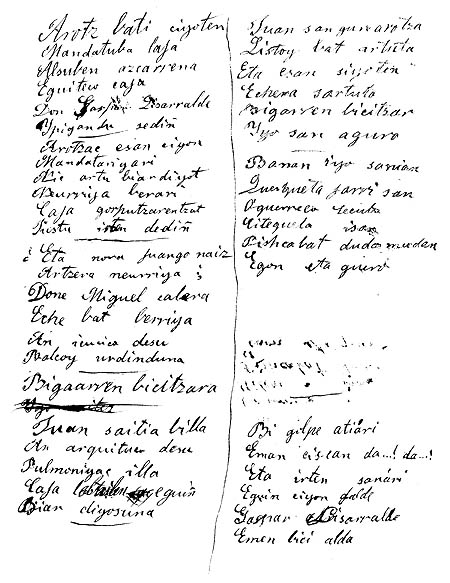 Arotz bati ciyoten
Mandatuba laja
Alsuben azcarrena
Eguiteco caja
Don Gaspar Lisarralde
Ypiganda sediñ
Arotzac esan ciyon
Mandatariyari
Nic artu biardiyot
Neurriya berari
Caja gorputzarentzat
Justu dediñ
¿ Eta nora juango naiz
Artzera neurriya ?
Done Miguel calera
Eche bat berriya
An icusico desu
Balcoy urdinduna
Bigaarren bicitzara
Juan saitia billa
An arquituco desu
Pulmoniyac illa
Caja eguin
Bian diyosuna
Juan san gure arotza
Listoy bat artuta
Eta esan siyoten
Echera sartuta
Bigarren bicitzan
Yyo san aguro
Banan iyo sanian
Quezqueta jarri san
Ogerreco
Citequela isan
Pishca bat dudamudan
Egon eta guero
Bi golpe atiari
Eman cizcan da...! da...!
Eta irten sanari
Eguin ciyon galde
Gaspar Lisarralde
Emen bici alda